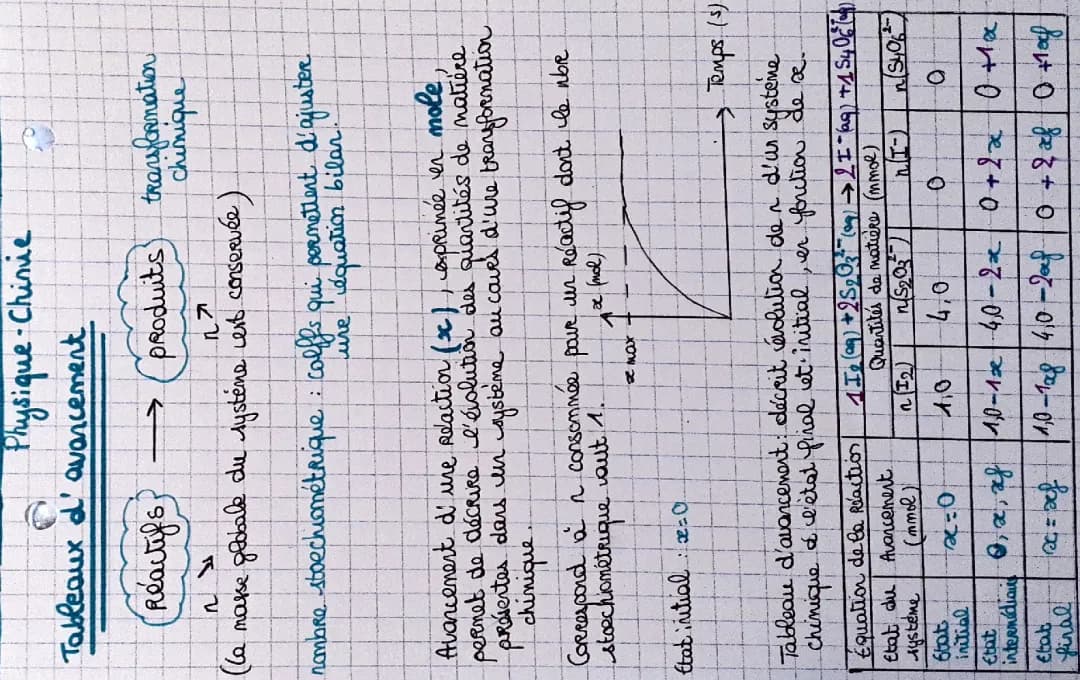 Physique-Chimie
Tableaux d'avancement
Réactifs → produits transformation
chimique
n ↘ n ↗
(la masse globale du système est conservée)
nombre stoechiométrique : coeffs qui permettent d'ajuster
une équation bilan.
Avancement d'une réaction (x), exprimée en mole,
permet de décrire l'évolution des quantités de matière
présentes dans un système au cours d'une transformation
chimique.
Correspond à n consommée par un réactif dont le nbre
stoechiométrique vaut 1.
x (mol)
x max
Temps (s)
Etat initial : x=0
Tableau d'avancement : décrit évolution de n d'un système
chimique à l'état final et initial, en fonction de x.
Équation de la réaction 1 I2 (aq) + 2 S2O3²⁻ (aq) → 2 I⁻ (aq) + 1 S4O6²⁻ (aq)
Etat du système Avancement (mmol) Quantités de matière (mmol)
n(I2) n(S2O3²⁻) n(I⁻) n(S4O6²⁻)
Etat initial x=0 1,0 4,0 0 0
Etat intermédiaire 0, x, xf 1,0-1x 4,0-2x 0+2x 0+1x
Etat final x=xf 1,0-1xf 4,0-2xf 0+2xf 0+1xf